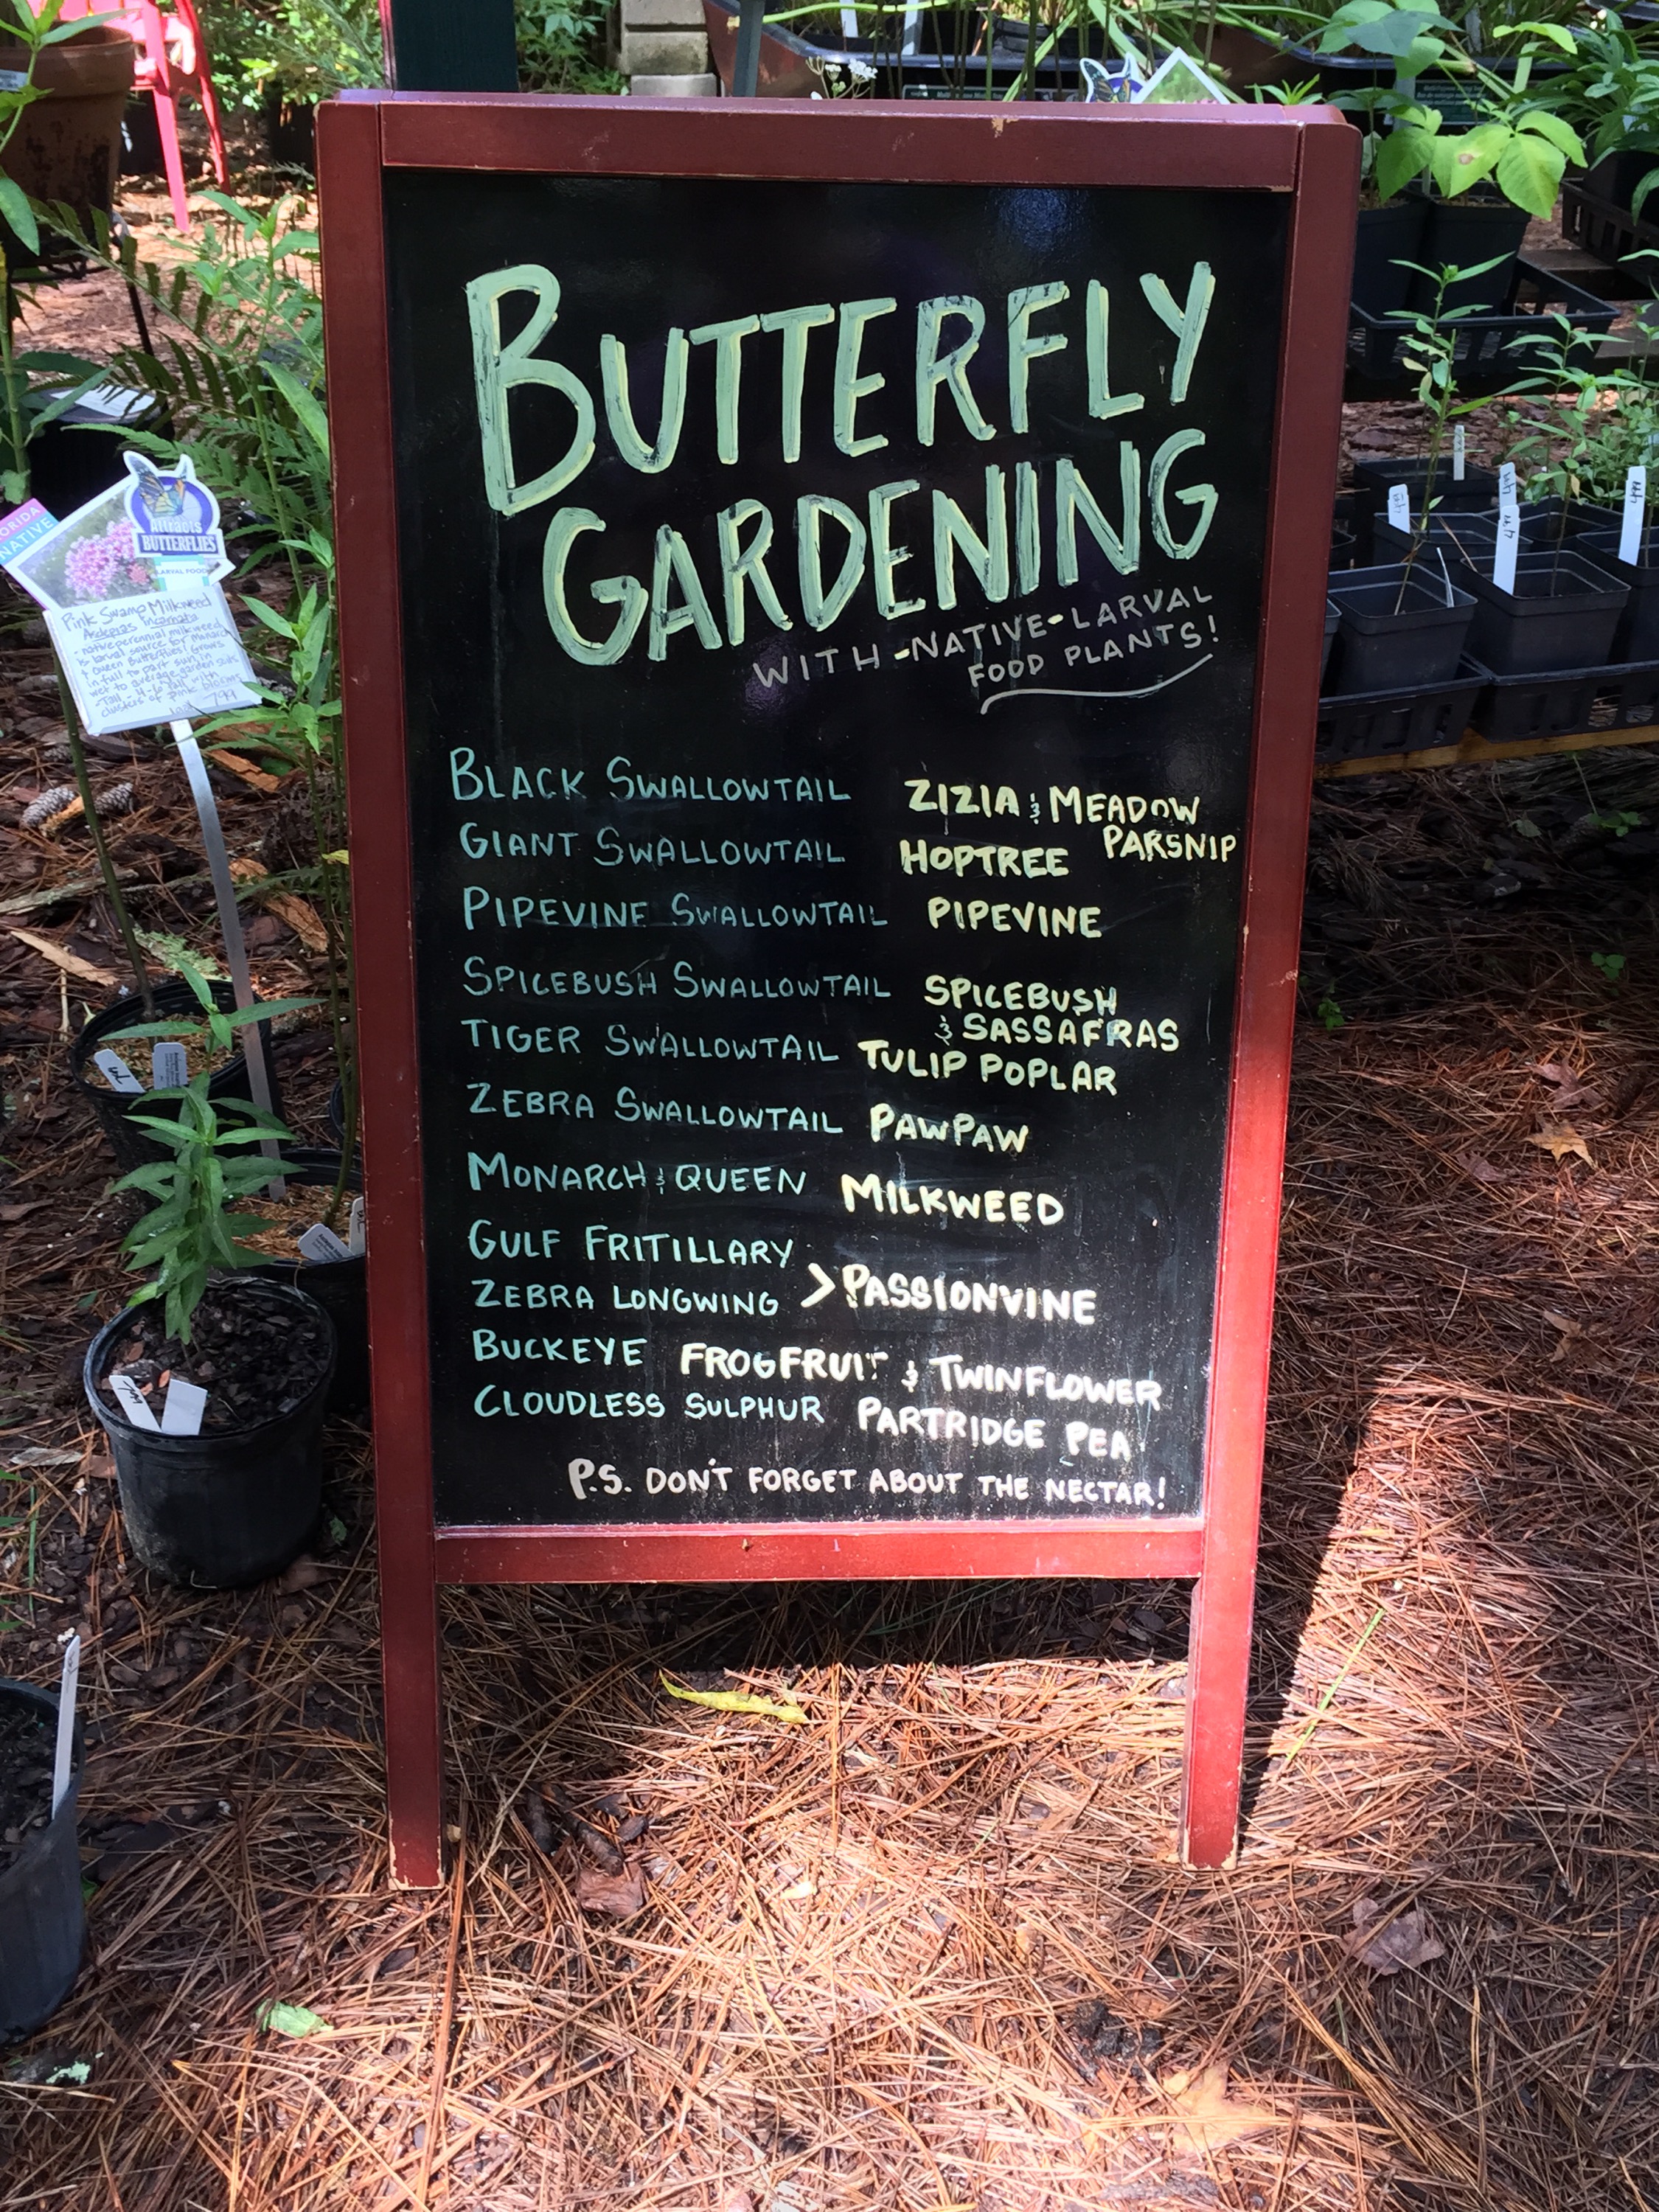 BUTTERFLY
GARDENING
WITH-NATIVE-LARVAL
FOOD PLANTS!
BLACK SWALLOWTAIL ZIZIA & MEADOW
PARSNIP
GIANT SWALLOWTAIL HOPTREE
PIPEVINE SWALLOWTAIL PIPEVINE
SPICEBUSH SWALLOWTAIL SPICEBUSH
& SASSAFRAS
TIGER SWALLOWTAIL TULIP POPLAR
ZEBRA SWALLOWTAIL PAWPAW
MONARCH & QUEEN MILKWEED
GULF FRITILLARY
ZEBRA LONGWING > PASSIONVINE
BUCKEYE FROGFRUIT & TWINFLOWER
CLOUDLESS SULPHUR PARTRIDGE PEA
P.S. DON'T FORGET ABOUT THE NECTAR!
FLORIDA
NATIVE
Attracts
BUTTERFLIES
LARVAL FOOD
Pink Swamp Milkweed
Asclepias Incarnata
- native perennial milkweed
is larval source for Monarch
& Queen Butterflies! Grows
in full to part sun in
wet to average garden soils
- Tall - 4-6' tall with
clusters of pink blooms
799